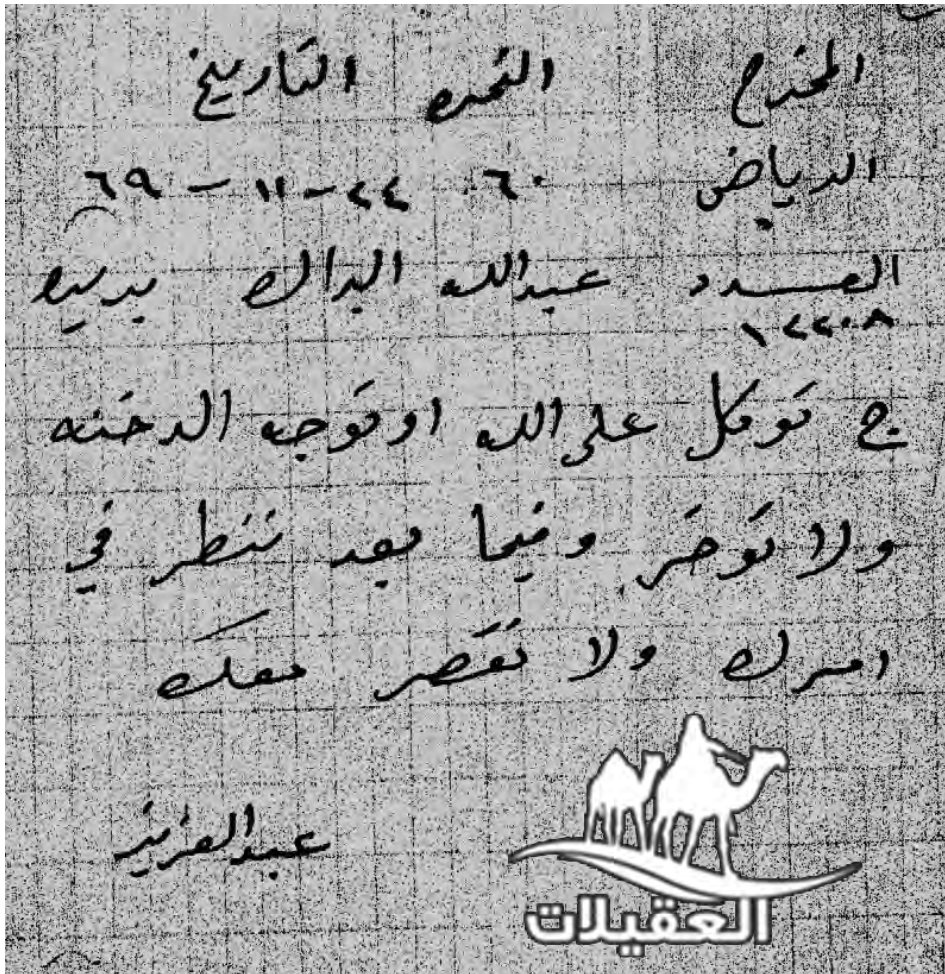 المخرج النمره التاريخ
الرياض ٦٠ ٢٤ - ١١ - ٦٩
العدد عبدالله البداك بريده
١٢٢٠٨
ج توكل على الله اوتوجه الدخنه
ولا توخر وفيما بعد ننظر في
امرك ولا نقصر معك
عبدالعزيز
العقيلات